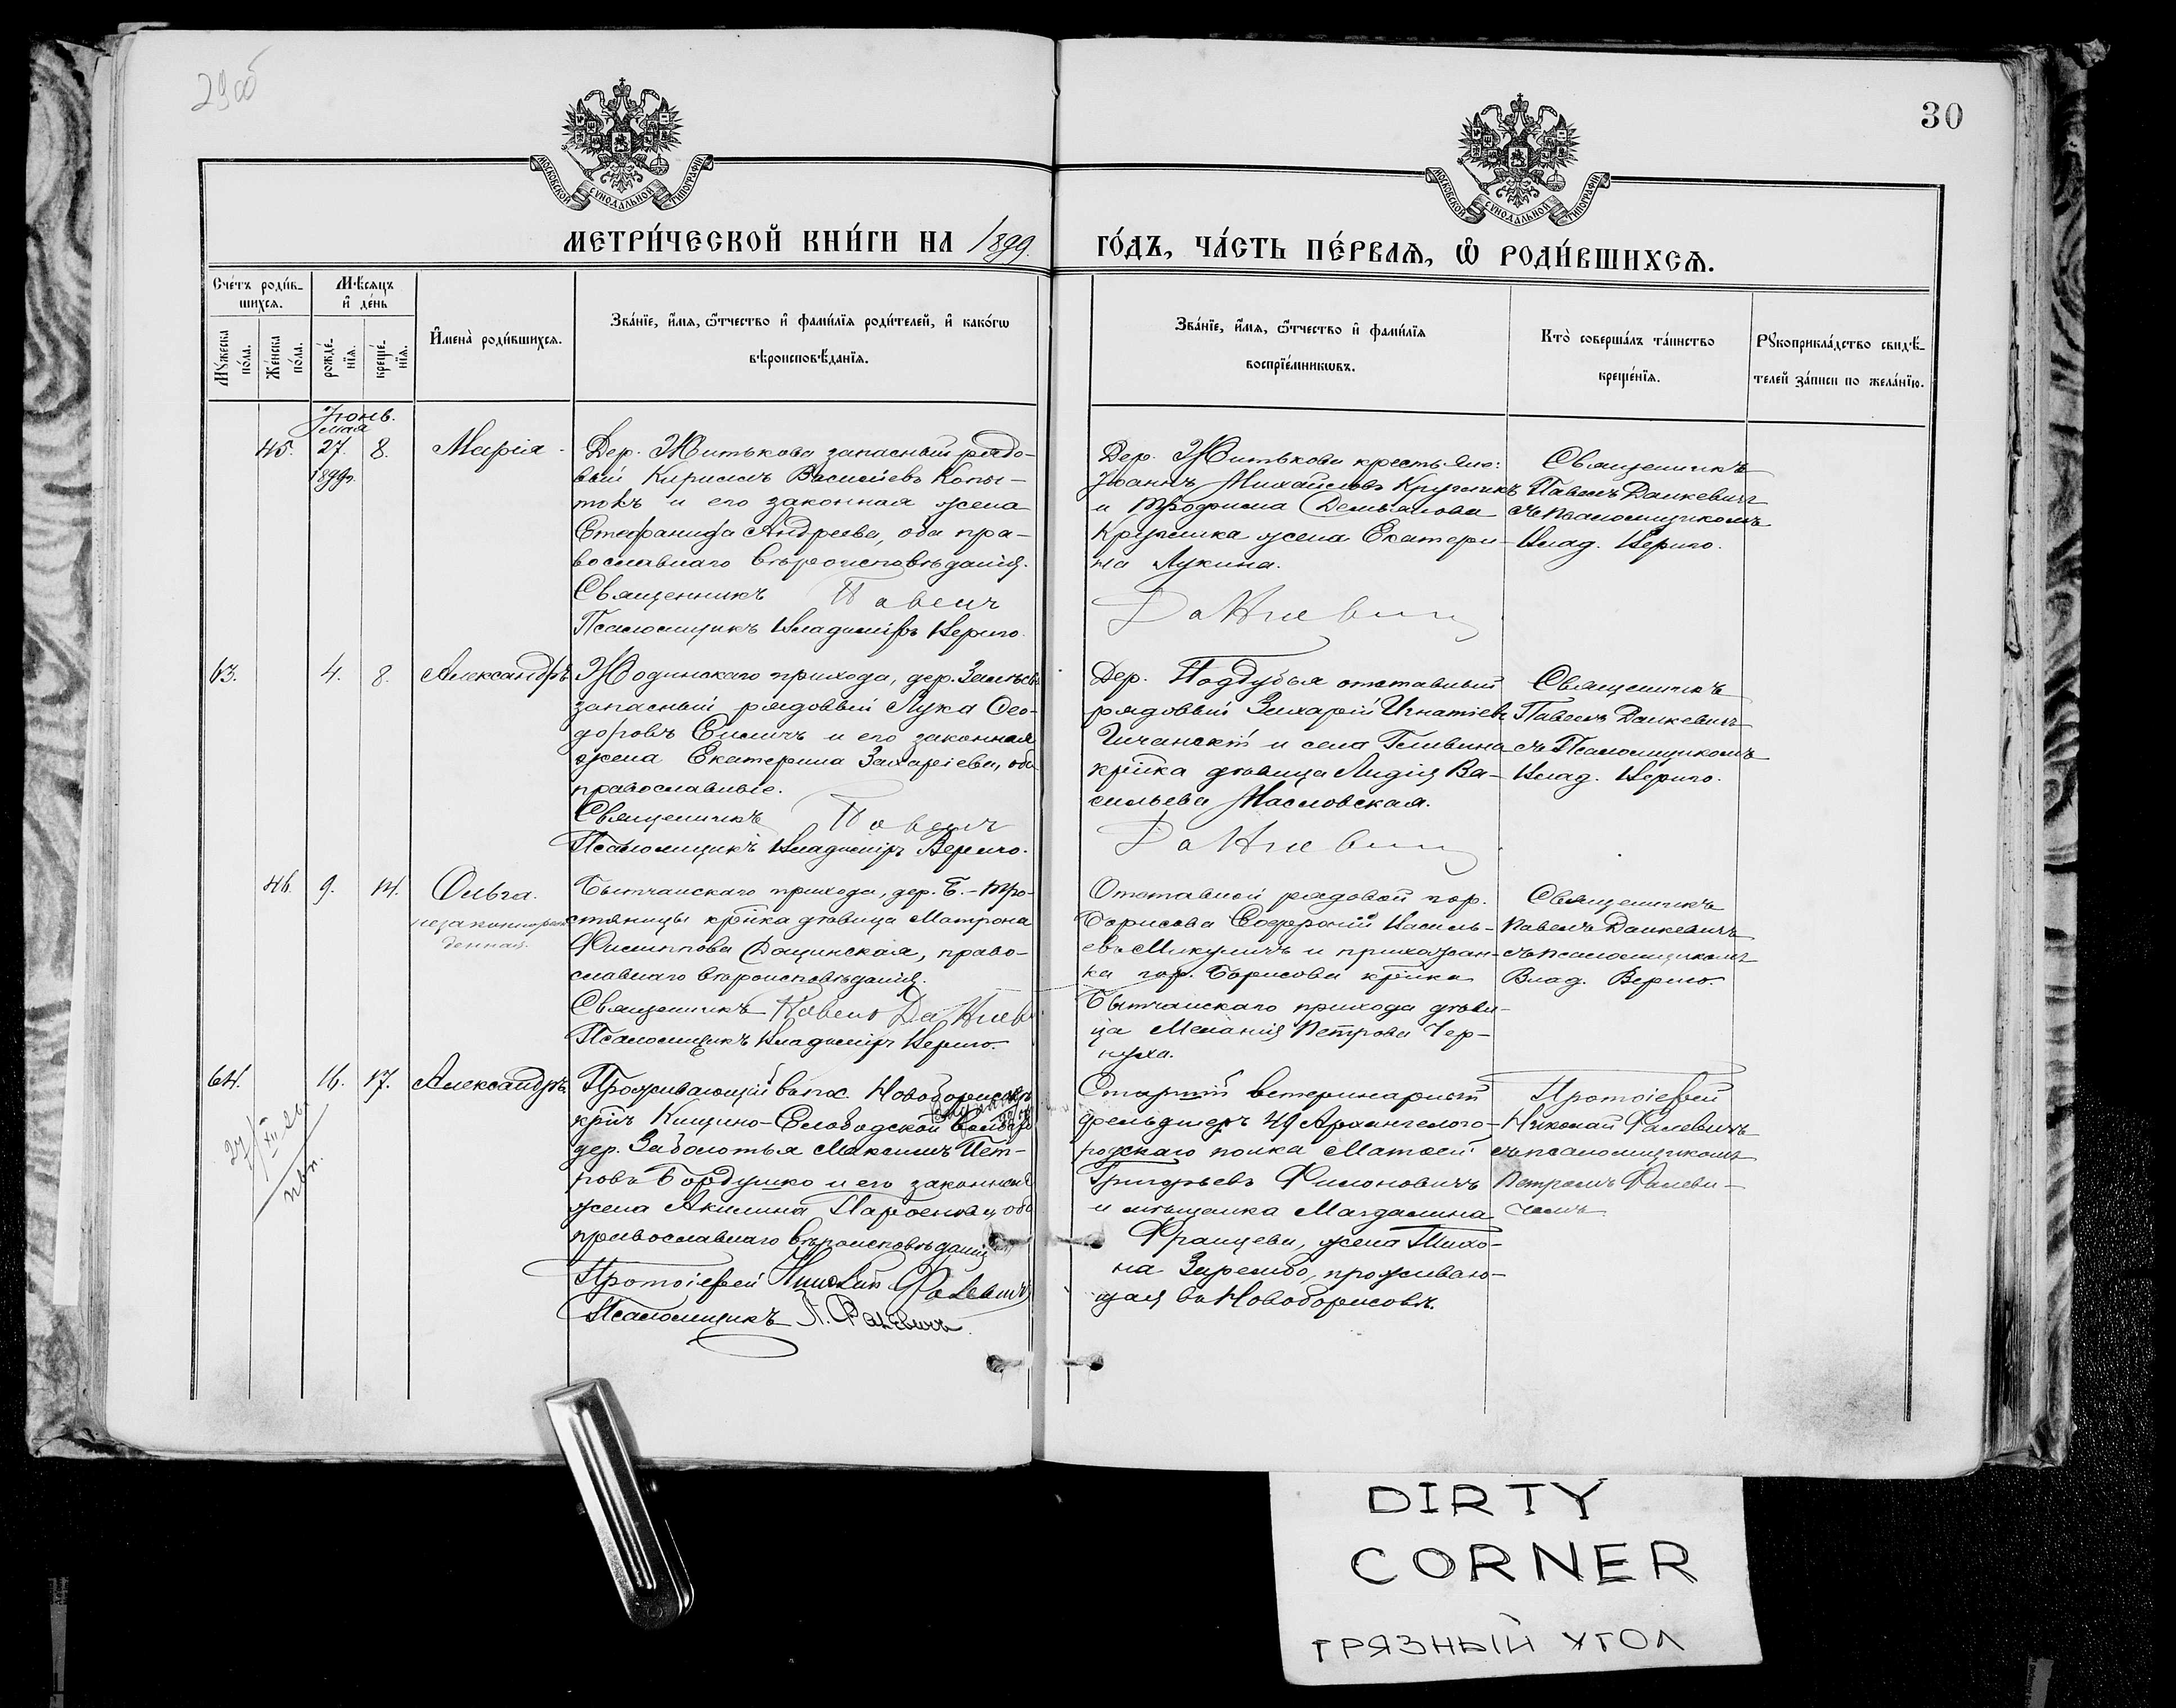 29 об
30
МОСКОВСКОЙ СѴНОДАЛЬНОЙ ТИПОГРАФІИ
МОСКОВСКОЙ СѴНОДАЛЬНОЙ ТИПОГРАФІИ
МЕТРИ́ЧЕСКОЙ КНИ́ГИ НА 1899.
ГО́ДЪ, ЧА́СТЬ ПЕ́РВАѦ, Ѡ҆ РОДИ́ВШИХСѦ.
Сче́тъ роди́в-
шихсѧ.
Мꙋжеска
по́ла.
Же́нска
по́ла.
Мѣ́сяцъ
и҆ де́нь
рожде́-
нїѧ.
креще́-
нїѧ.
И҆мена̀ роди́вшихсѧ.
Зва́нїе, и҆́мѧ, ѻ҆́тчество и҆ фами́лїѧ роди́телей, и҆ како́гѡ
вѣроисповѣ́данїѧ.
Зва́нїе, и҆́мѧ, ѻ҆́тчество и҆ фами́лїѧ
воспрїе́мникѡвъ.
Кто̀ соверша́лъ та́инство
креще́нїѧ.
Рꙋкоприкла́дство свидѣ́-
телей за́писи по жела́нїю.
Іюнь.
мая
45. 27. 8. Марія
1899г.
Дер. Житькова запасный рядо-
вый Кириллъ Васильевъ Копы-
токъ и его законная жена
Стефанида Андреева, оба пра-
вославнаго вѣроисповѣданія.
Священникъ Павелъ
Псаломщикъ Владиміръ Верио.
Дер. Житькова крестьяне:
Іоаннъ Михайловъ Кругликъ
и Трофима Демьянова
Круглика жена Екатери-
на Лукина.
Данкевичъ
Священникъ
Павелъ Данкевичъ
съ псаломщикомъ
Влад. Верио.
63. 4. 8. Александръ
Жодинскаго прихода, дер.
запасный рядовый Лука Ѳео-
доровъ и его законная
жена Екатерина Захаріева, оба
православные.
Священникъ Павелъ
Псаломщикъ Владиміръ Верио.
Дер. Поддубья отставный
рядовый Захарій Игнатіевъ
и села Гливина
кр–ка дѣвица Лидія Ва-
сильева Масловская.
Данкевичъ
Священникъ
Павелъ Данкевичъ
съ Псаломщикомъ
Влад. Верио.
46. 9. 14. Ольга.
незаконнорож
денная.
Бытчанскаго прихода, дер. Б.-Тро-
стяницы кр–ка дѣвица Матрона
Филиппова Дащинская, право-
славнаго вѣроисповѣданія.
Священникъ Павелъ Данкев
Псаломщикъ Владиміръ Верио.
Отставной рядовой гор.
Борисова Софроній Василь-
евъ Микуличъ и прихожан-
ка гор. Борисова кр–ка
Бытчанскаго прихода дѣви-
ца Меланія Петрова Чер-
нуха.
Священникъ
Павелъ Данкевичъ
съ псаломщикомъ
Влад. Верио.
64. 16. 17. Александръ
Проживающій въ пос. Новоборисовъ
кр–нъ Кищино-Слободской волости
дер. Заболотья Максимъ Пет-
ровъ Бордушко и его законная
жена Акилина Парѳенова, оба
православнаго вѣроисповѣданія
Протоіерей Николай Фалевичъ
Псаломщикъ П. Фалевичъ.
Старшій ветеринарный
фельдшеръ 49 Архангелого-
родскаго полка Матѳей
Григорьевъ Филоновичъ
и мѣщанка Магдалина
Францева, жена Тихо-
на Зарембо, проживаю-
щая въ Новоборисовѣ.
Протоіерей
Николай Фалевичъ
съ псаломщикомъ
Петромъ Фалеви-
чемъ
DIRTY
CORNER
ГРЯЗНЫЙ УГОЛ